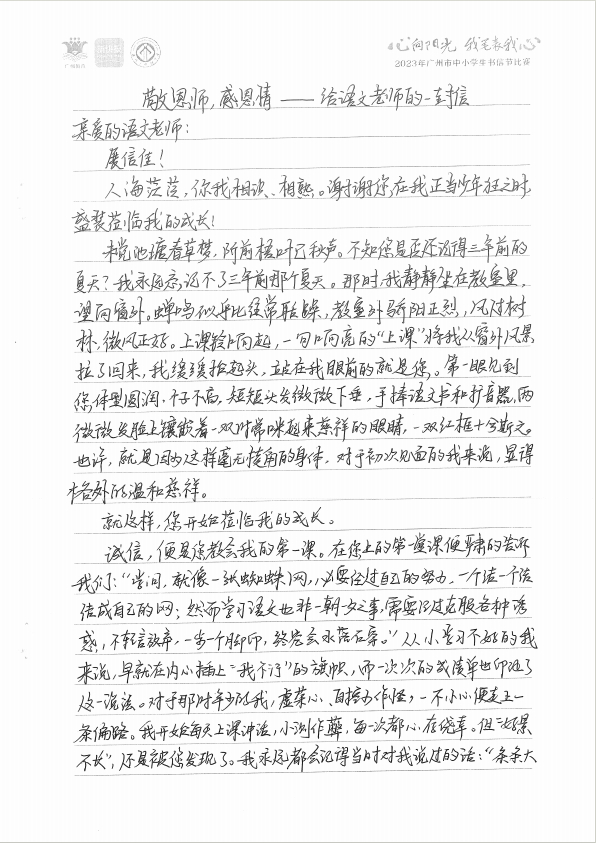 心向阳光 我笔表我心
2023年广州市中小学生书信节比赛
敬恩师,感恩情——给语文老师的一封信
亲爱的语文老师:
展信佳!
人海茫茫,你我相识、相熟。谢谢您,在我正当少年狂之时,
盛装莅临我的成长!
未觉池塘春草梦,阶前梧叶已秋声。不知您是否还记得三年前的
夏天?我永远忘记不了三年前那个夏天。那时,我静静坐在教室里,
望向窗外。蝉鸣似乎比经常聒噪,教室外骄阳正烈,风过树
林,微风正好。上课铃响起,一句响亮的“上课”将我从窗外风景
拉了回来,我缓缓抬起头,立在我眼前的就是您。第一眼见到
您体型圆润,个子不高,短短头发微微下垂,手捧语文书和扩音器,两
微微发脸上镶嵌着一双时常眯起来慈祥的眼睛,一双红框十分斯文。
也许,就是因为这样毫无棱角的身体,对于初次见面的我来说,显得
格外的温和慈祥。
就这样,您开始莅临我的成长。
诚信,便是您教会我的第一课。在您上的第一堂课便严肃的告诉
我们:“学问,就像一张蜘蛛网,必要经过自己的努力,一个结一个结
结成自己的网;然而学习语文也非一朝一夕之事,需要经过克服各种诱
惑,不轻言放弃,一步一个脚印,终究会水落石穿。”从小学习不好的我
来说,早就在内心插上“我不行”的旗帜,而一次次的成绩单也印证了
这一说法。对于那时年少的我,虚荣心、自控力作怪,一不小心便走上一
条偏路。我开始每天上课讲话,小测作弊,每一次都心存侥幸。但“好景
不长”,还是被您发现了。我永远都会记得当时对我说过的话:“条条大